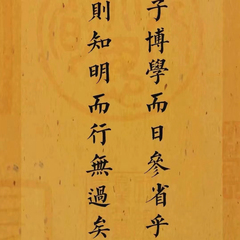 子博學而日參省乎
則知明而行無過矣